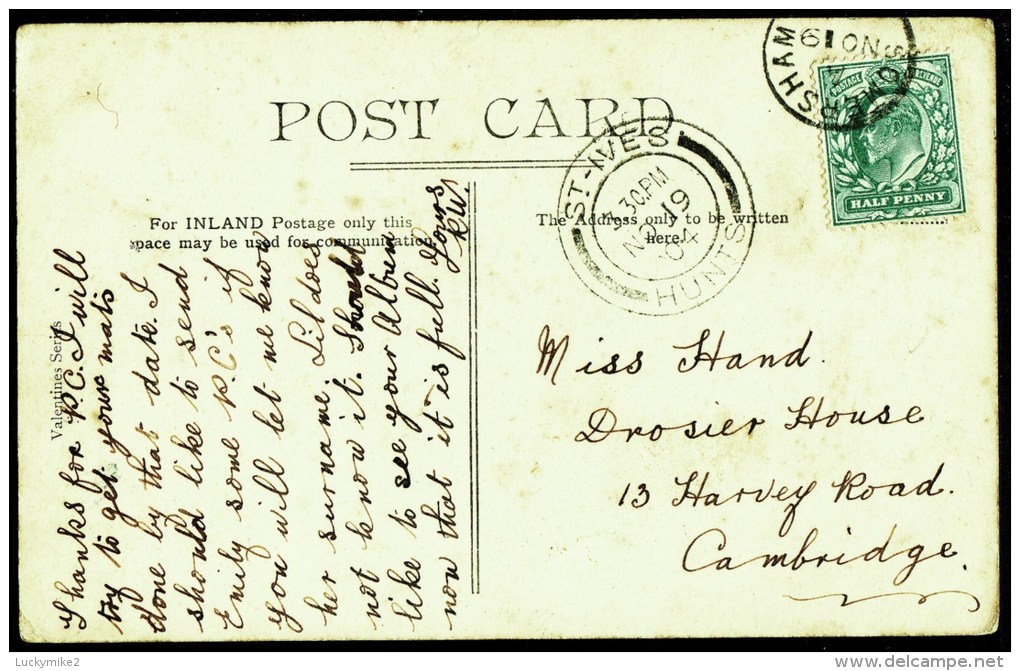 POST CARD
For INLAND Postage only this
space may be used for communication.
The Address only to be written
here.
Valentines Series
Thanks for P.C. I will
try to get your mats
done by that date. I
should like to send
Emily some P.C's if
you will let me know
her surname. Lil does
not know it. Should
like to see your Album
now that it is full. Yours
KW
Miss Hand.
Drosier House
13 Harvey Road.
Cambridge.
ST-IVES
3.30PM
NO 19
04
HUNTS
SOMERSHAM
NO 19
POSTAGE
HALF PENNY
Luckymike2
www.delcampe.net